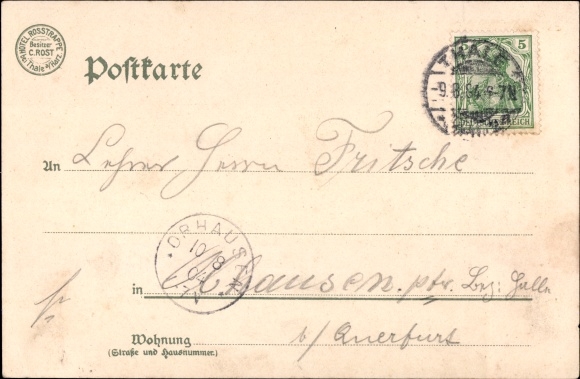 HOTEL ROSSTRAPPE
Besitzer
C. ROST
Thale a/Harz.
Postkarte
5
THALE
9.8.04. 6-7N
REICH
An Lehrer Herrn Fritsche
OBHAUSEN
10 8
04
in Obhausen. ptr. Bez. Halle
b/ Querfurt
Wohnung
(Straße und Hausnummer.)